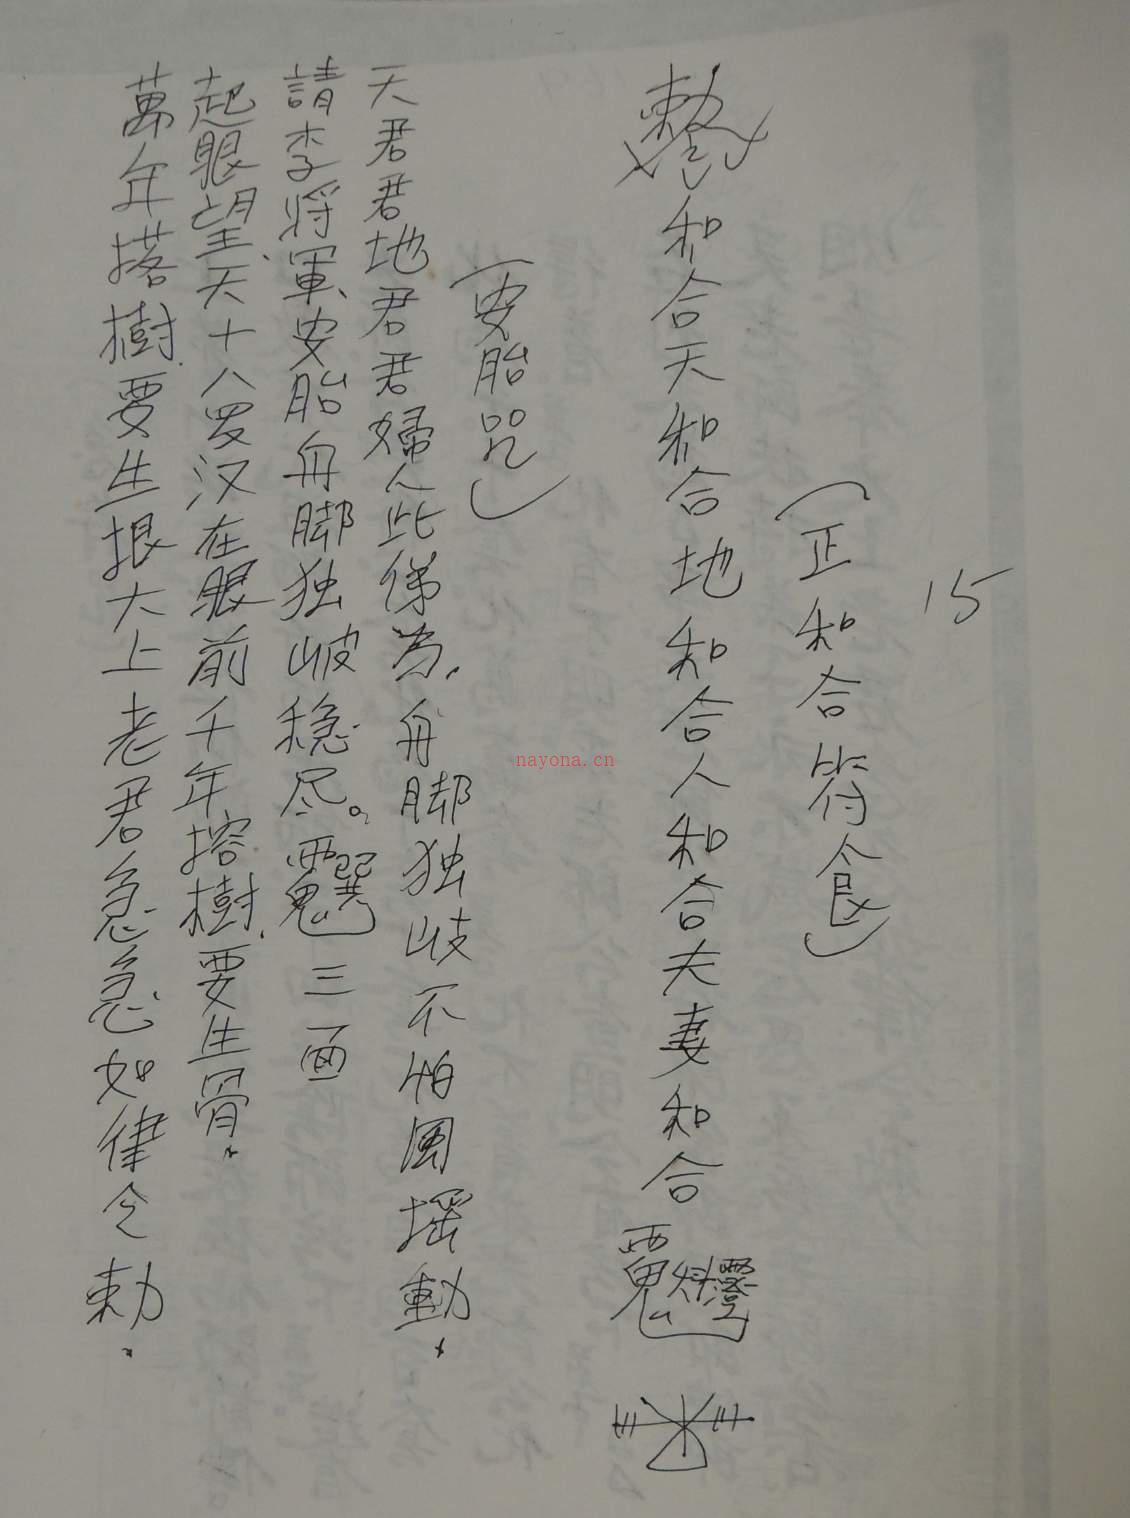 15
(正和合符食)
勅令和合天和合地和合人和合夫妻和合
(安胎咒)
天君君地君君婦人此俤為.舟脚独岐不怕風搖動.
請李将軍、安胎舟脚独岥稳尽。三面
起眼望、天十八罗汉在眼前千年搈樹.要生骨.
萬年搭樹.要生掑大上老君急急如律令勅.
nayona.cn